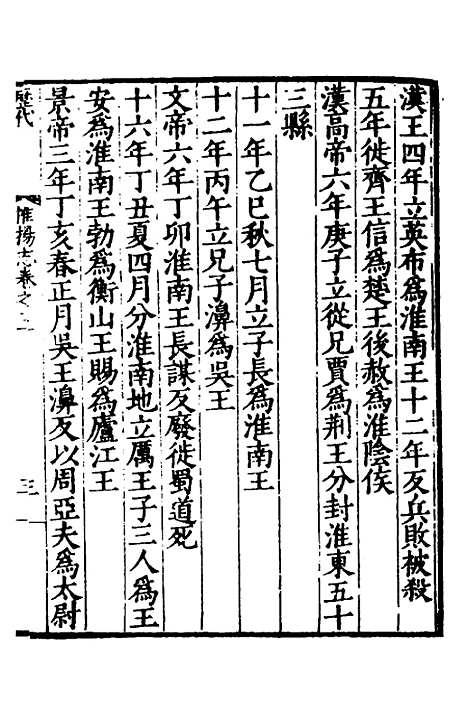 漢王四年立英布爲淮南王十二年反兵敗被殺
五年徙齊王信爲楚王後赦爲淮陰侯
漢高帝六年庚子立從兄賈爲荆王分封淮東五十
三縣
十一年乙巳秋七月立子長爲淮南王
十二年丙午立兄子濞爲吳王
文帝六年丁卯淮南王長謀反廢徙蜀道死
十六年丁丑夏四月分淮南地立厲王子三人爲王
安爲淮南王勃爲衡山王賜爲廬江王
景帝三年丁亥春正月吳王濞反以周亞夫爲太尉
歷代
惟揚志卷之二
三